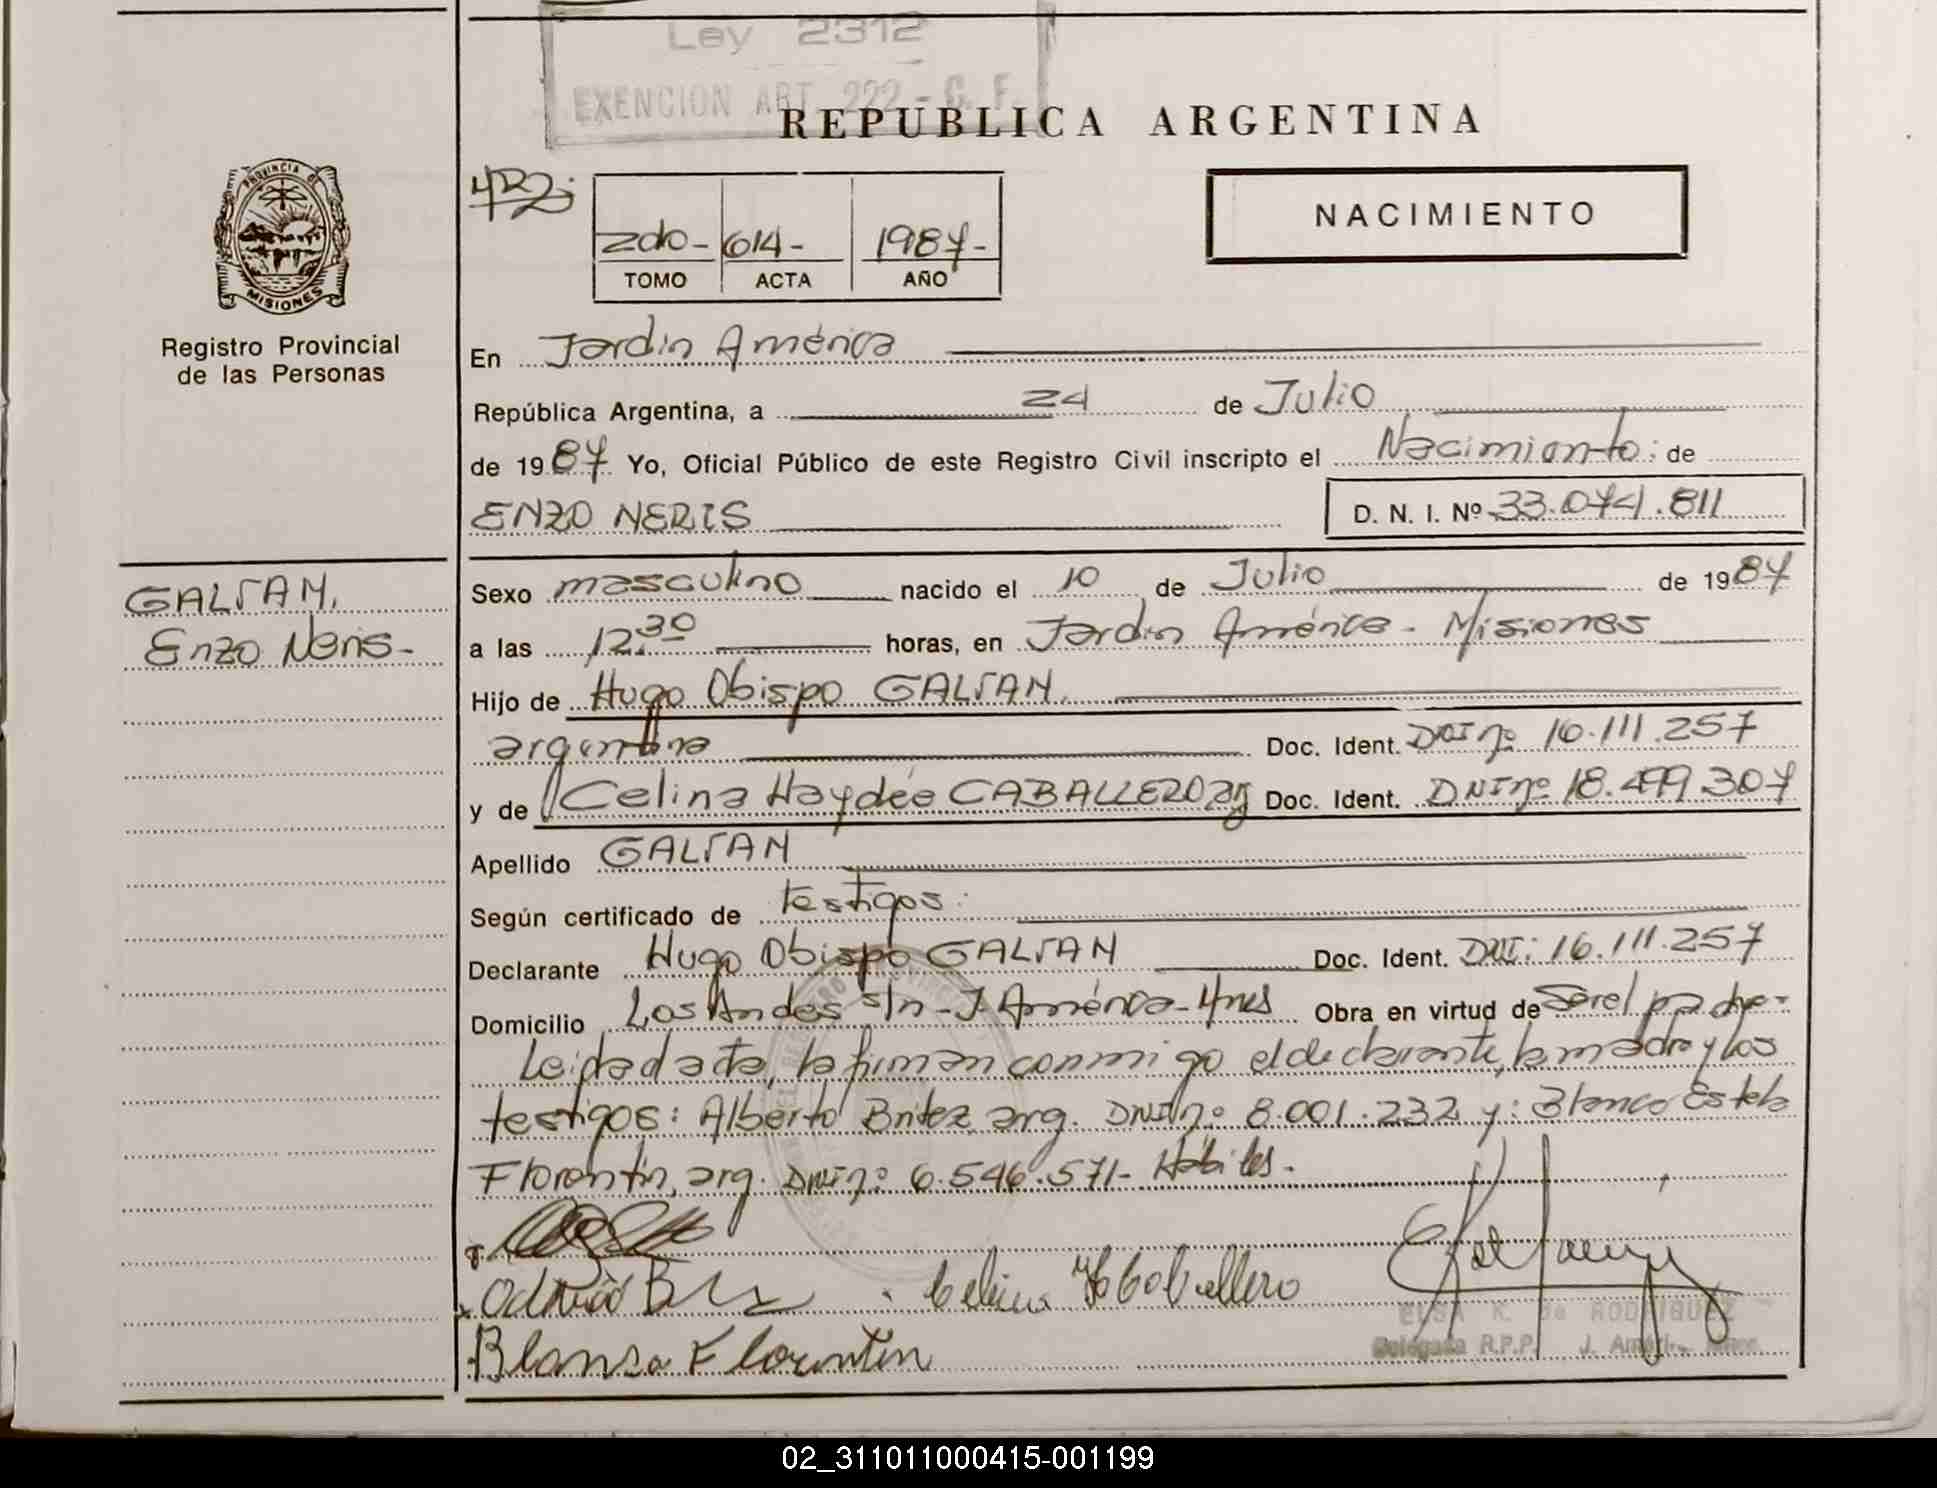 Ley 2312
EXENCION ART. 222 - C. F.
REPUBLICA ARGENTINA
PROVINCIA DE
MISIONES
Registro Provincial
de las Personas
2do - 614 - 1987 -
TOMO ACTA AÑO
NACIMIENTO
En Jardin América
República Argentina, a 24 de Julio
de 1987 Yo, Oficial Público de este Registro Civil inscripto el Nacimiento: de
ENZO NERIS D. N. I. Nº 33.074.811
GALVAN,
Enzo Neris -
Sexo masculino nacido el 10 de Julio de 1987
a las 12.30 horas, en Jardin América - Misiones
Hijo de Hugo Obispo GALVAN,
argentino Doc. Ident. DNI nº 16.111.257
y de Celina Haydée CABALLERO arg Doc. Ident. DNI nº 18.499.307
Apellido GALVAN
Según certificado de testigos:
Declarante Hugo Obispo GALVAN Doc. Ident. DNI: 16.111.257
Domicilio Los Andes s/n - J. América - Mnes Obra en virtud de Ser el padre -
Leida el acta, la firman conmigo el declarante, la madre y los
testigos: Alberto Bntez, arg. DNI nº 8.001.232 y: Blanca Estela
Florentin, arg. DNI nº 6.546.571 - Hábiles.
Celina H Caballero
Blansa Florentin
ELSA K. de RODRIGUEZ
Delegada R.P.P. J. Améri
02_311011000415-001199